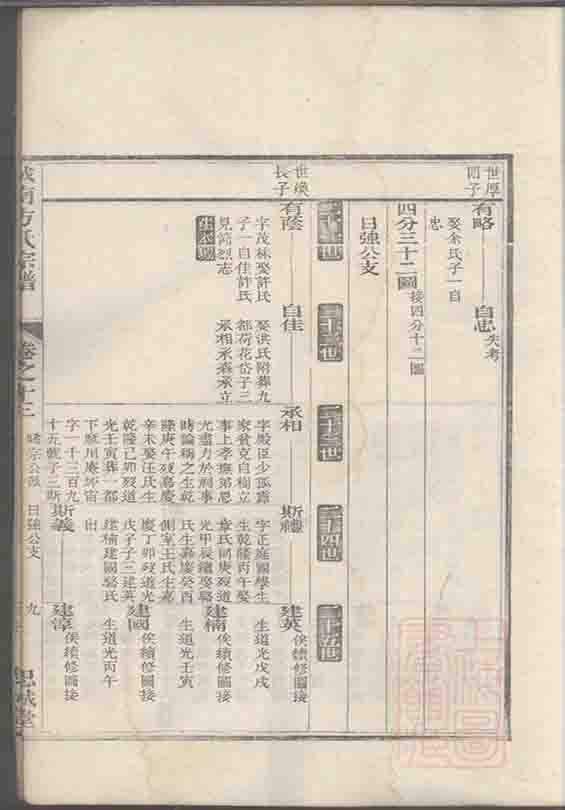 世厚
四子
有略
自忠
失考
娶余氏子一自
忠
四分三十二圖
接四分十二圖
日強公支
二十三世
二十四世
二十五世
世煥
長子
有蔭
自佳
承相
斯禮
建英
俟續修圖接
字茂林娶許氏
子一自佳許氏
見節烈志
娶洪氏附葬九
都荷花岱子三
承相承森承立
字殿臣少孤露
家貧克自樹立
事上孝撫弟恩
光盡力於祠事
時論稱之生乾
隆庚午歿嘉慶
辛未娶汪氏生
乾隆己卯歿道
光壬寅葬一都
下麻川庵坏宙
字一千三百九
十五號子三斯
字正庭國學生
生乾隆丙午娶
章氏同庚歿道
光甲辰繼娶駱
氏生嘉慶癸酉
側室王氏生嘉
慶丁卯歿道光
戊子子三建英
建楠建國駱氏
出
斯義
生道光戊戌
建楠
俟續修圖接
生道光壬寅
建國
俟續修圖接
生道光丙午
建淳
俟續修圖接
城南方氏宗譜
卷之十三
日強公支
九